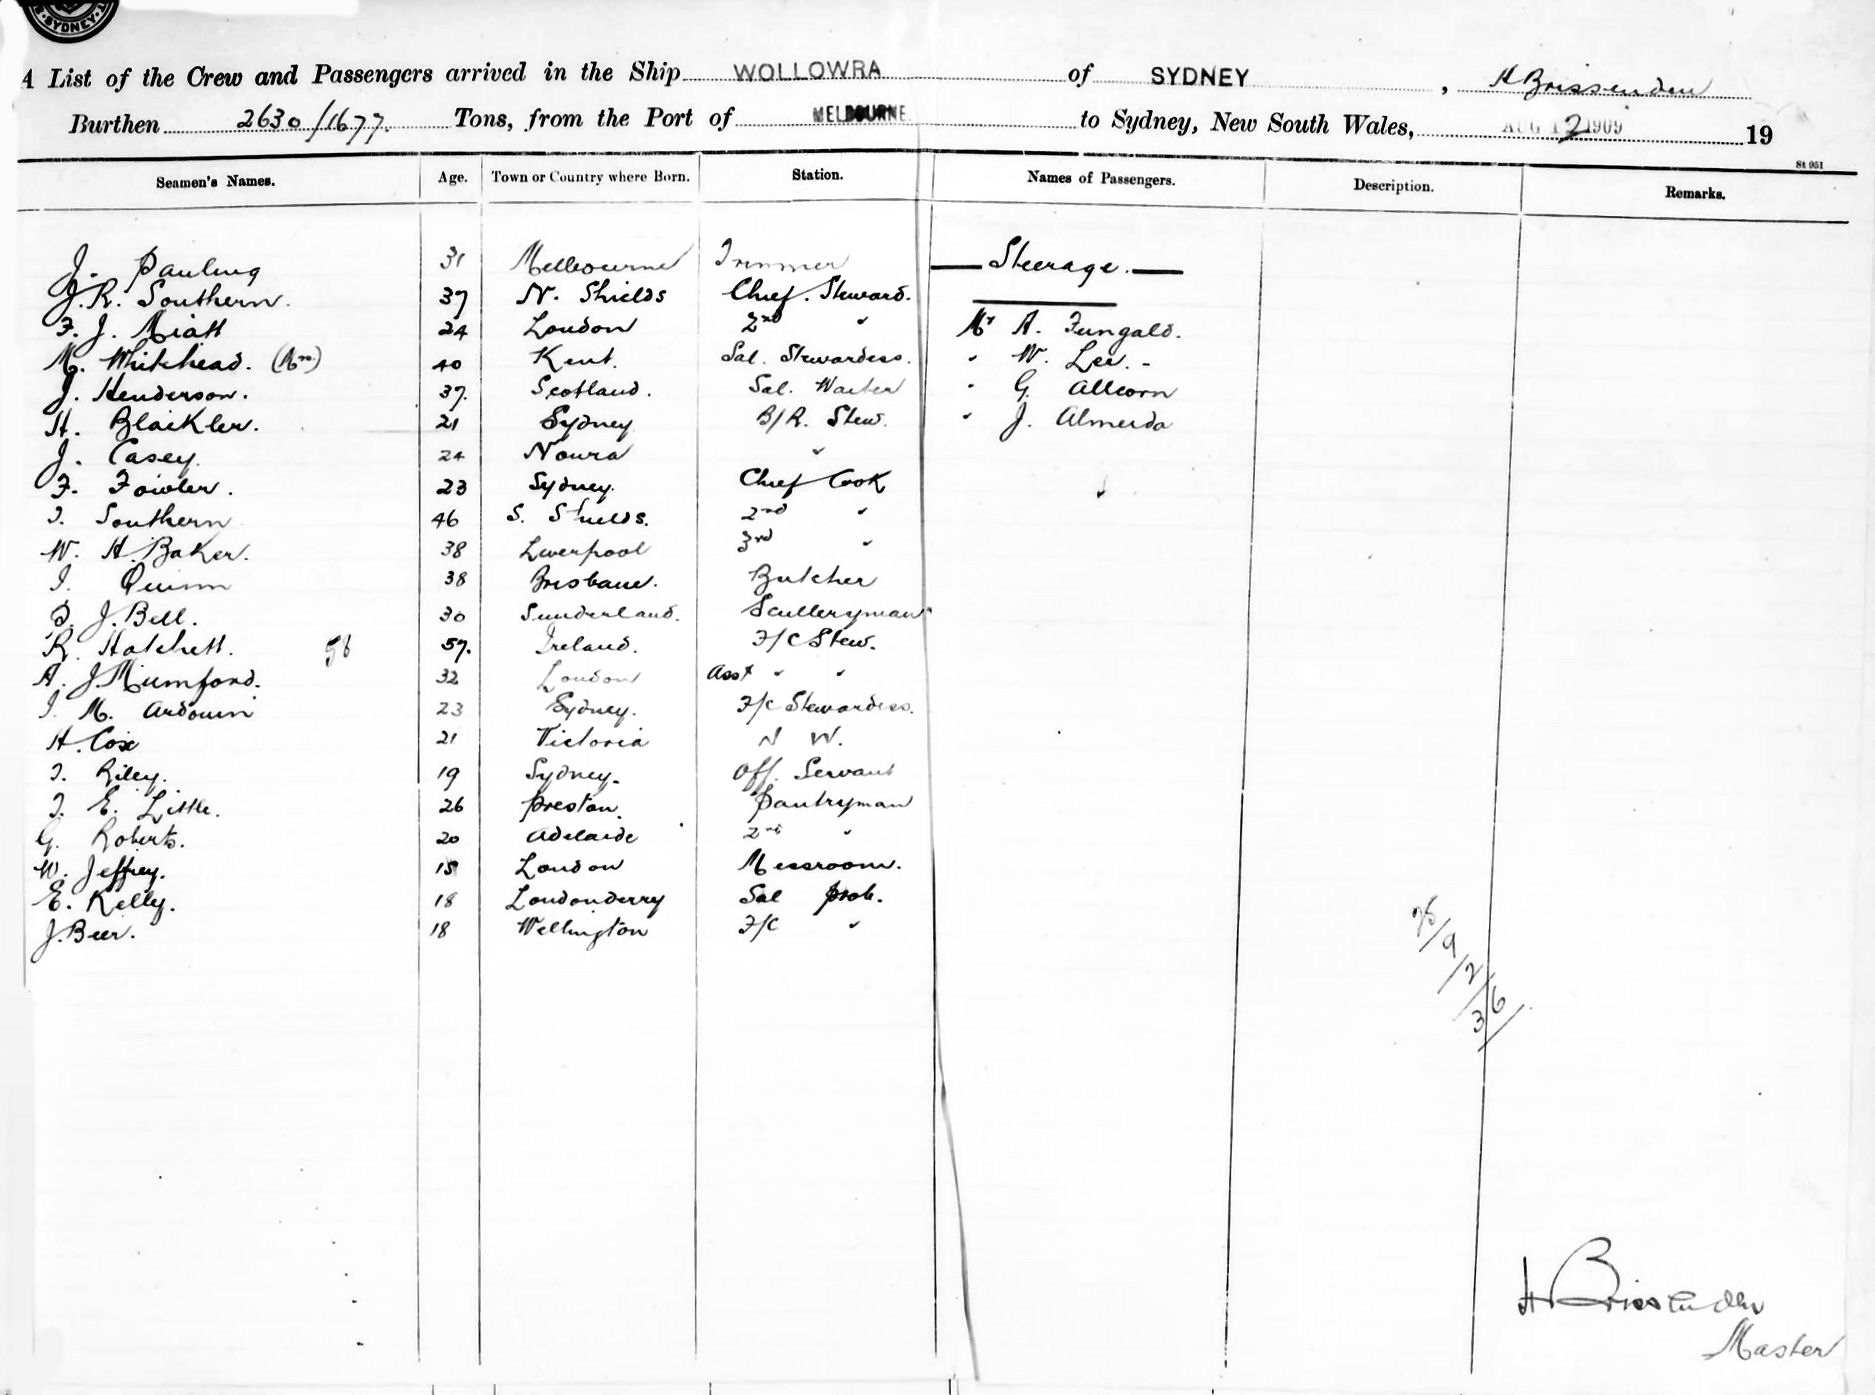 SYDNEY
A List of the Crew and Passengers arrived in the Ship WOLLOWRA of SYDNEY, H Brissenden
Burthen 2630/1677. Tons, from the Port of MELBOURNE to Sydney, New South Wales, AUG 12 1909 19
St 951
Seamen's Names. Age. Town or Country where Born. Station. Names of Passengers. Description. Remarks.
J. Pauling 31 Melbourne Trimmer — Steerage. —
J. R. Southern. 37 N. Shields Chief. Steward.
F. J. Miatt 24 London 2nd " Mr A. Fungald.
M. Whitehead. (Mrs) 40 Kent. Sal. Stewardess. " W. Lee. -
J. Henderson. 37. Scotland. Sal. Waiter " G. Allcorn
H. Blaikler. 21 Sydney B/R. Stew. " J. Almerda
J. Casey. 24 Nowra "
F. Fowler. 23 Sydney. Chief Cook
T. Southern 46 S. Shields. 2nd "
W. H. Baker. 38 Liverpool 3rd "
T. Quinn 38 Brisbane. Butcher
P. J. Bell. 30 Sunderland. Sculleryman
R. Hatchett. 58 57. Ireland. F/C Stew.
A. J. Mumford. 32 London Asst " "
I. M. Ardouin 23 Sydney. F/C Stewardess.
H. Cox 21 Victoria N W.
T. Riley. 19 Sydney. Off. Servant
T. E. Little. 26 Preston. Pantryman
G. Roberts. 20 Adelaide 2nd "
W. Jeffrey. 18 London Messroom.
E. Kelly. 18 Londonderry Sal Prob.
J. Beer. 18 Wellington F/C "
/9/2/36/
H Brissenden
Master